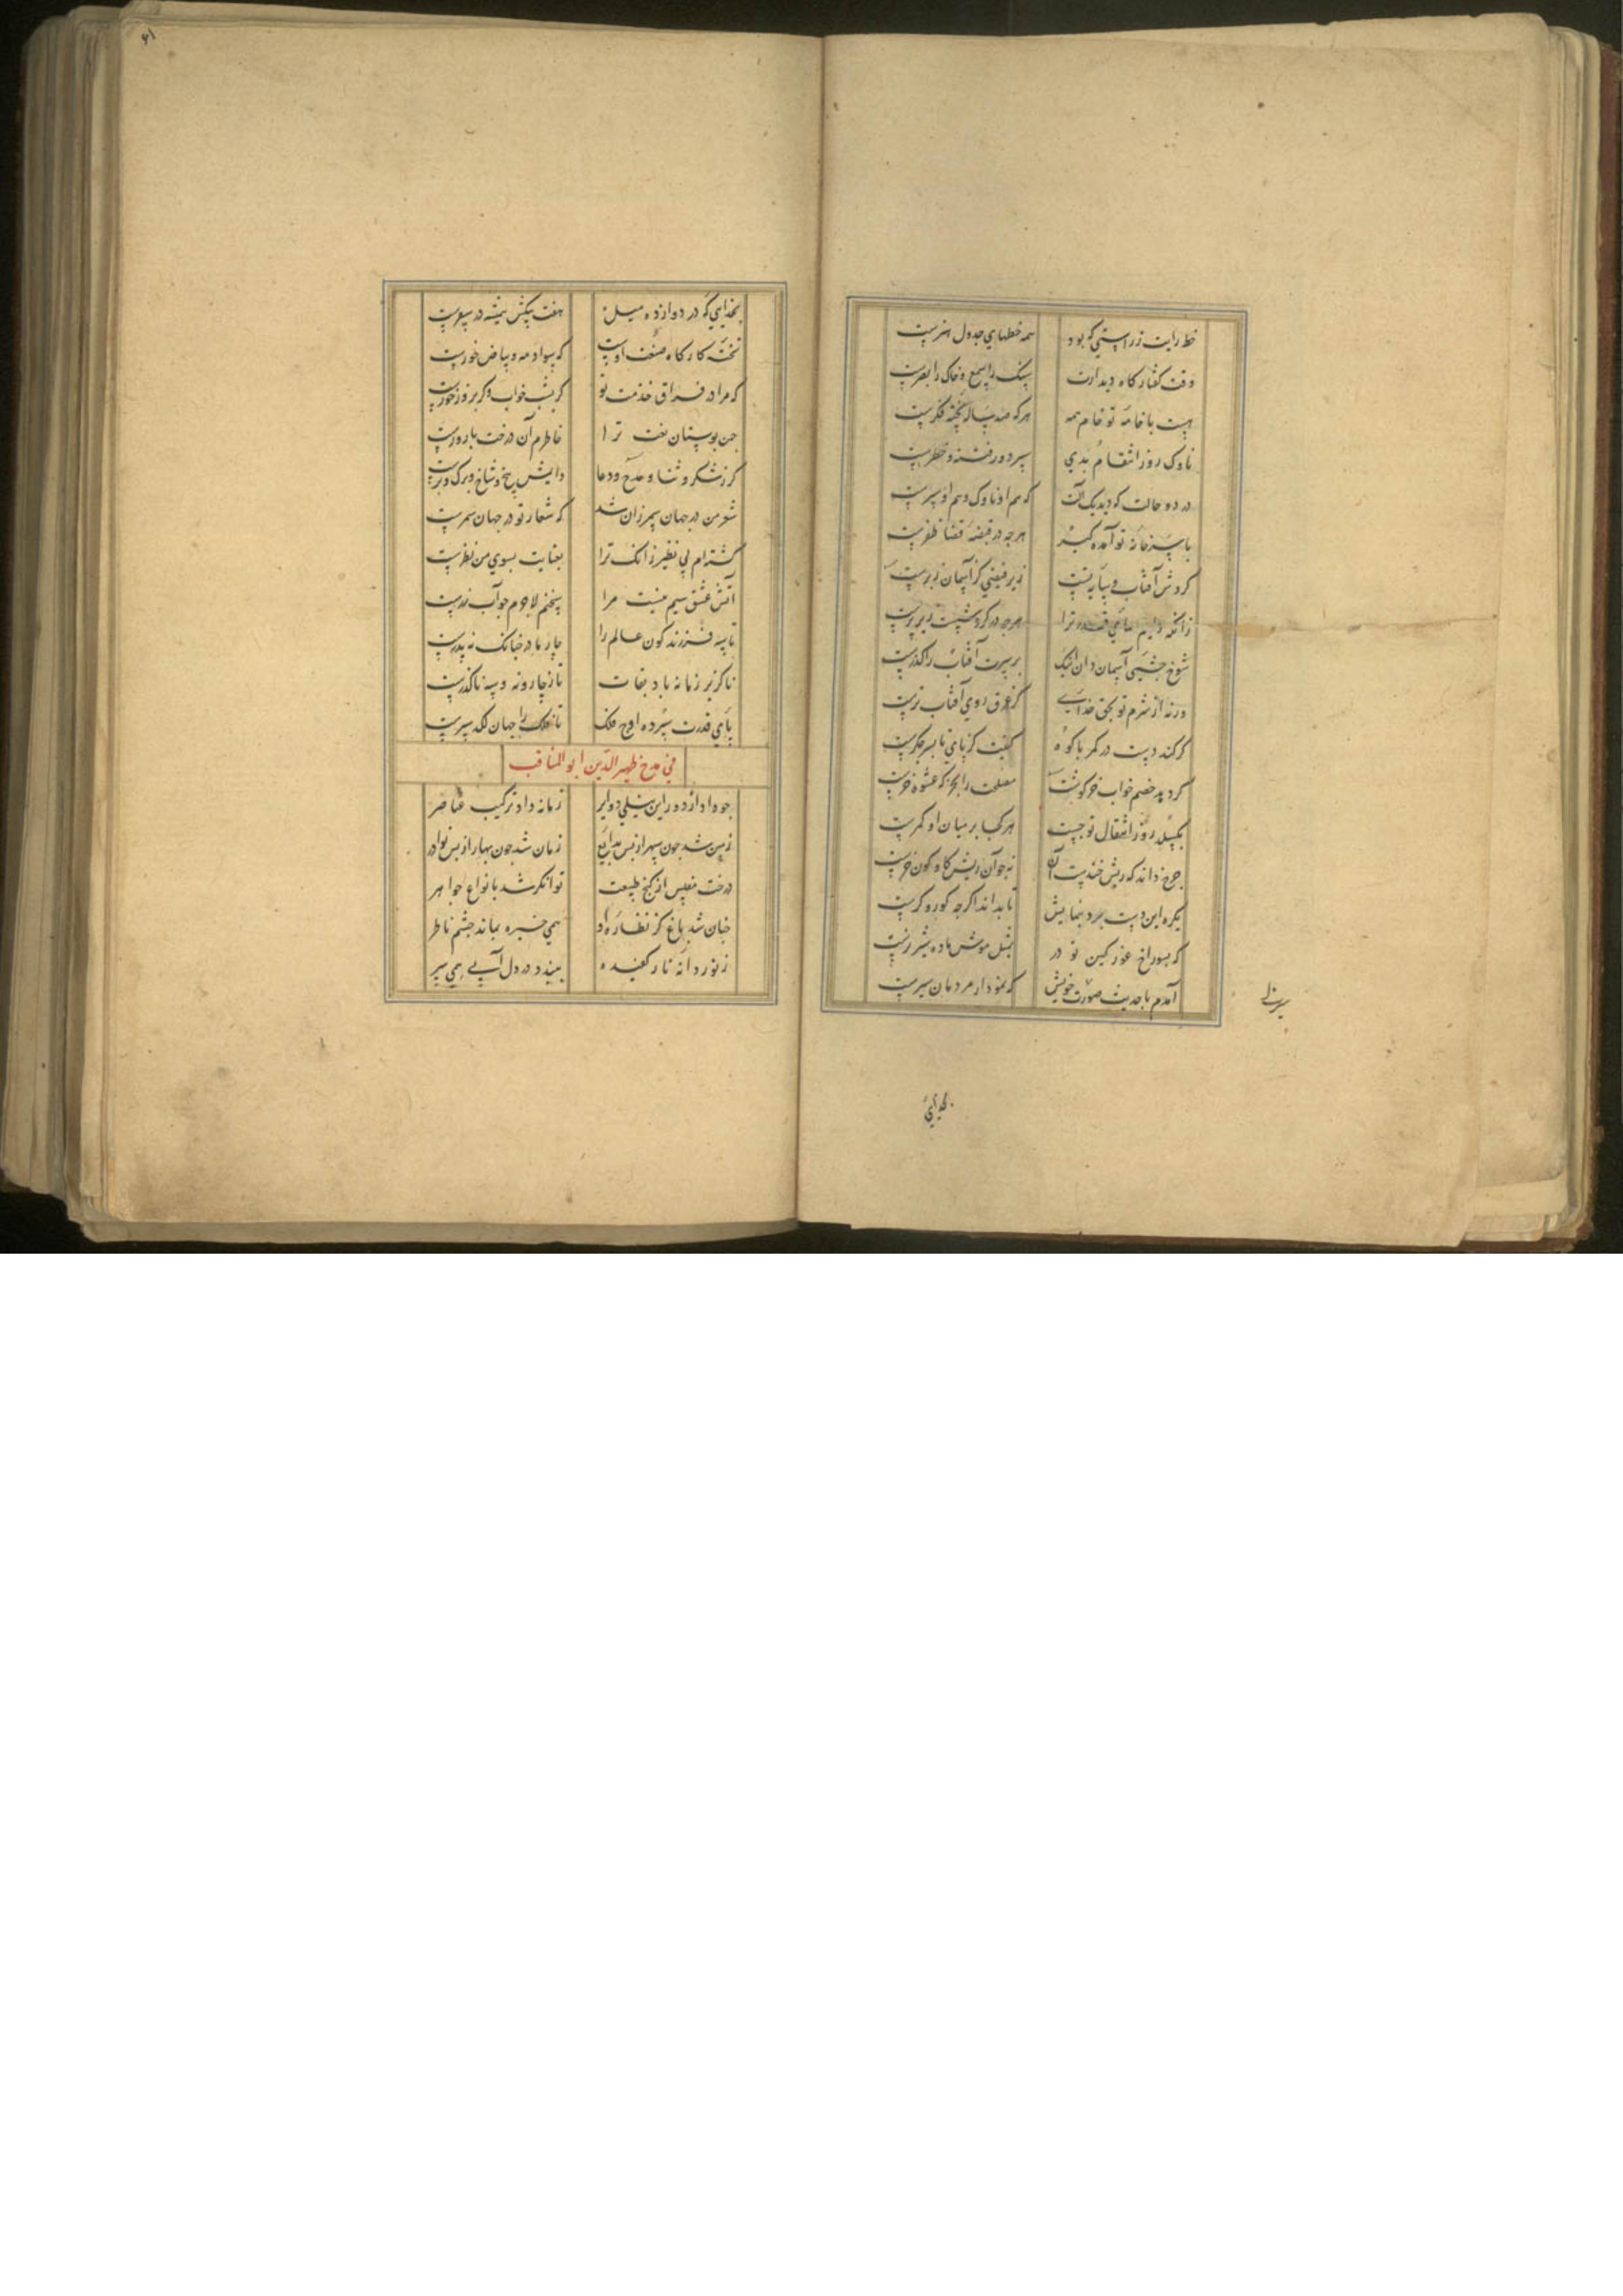 خط رایت ز راستی که بود همه خطهای جدول هنرست
وقت گفتار کاه دیدارت سنک را سمع و خاک را بصرست
هست با خامهٔ تو خام همه هرکه صد ساله پخته فکرست
ناوک روز انتقام بدی سپر دور فتنه و خطرست
در دو حالت که دید یک آلت که هم او ناوک و هم او سپرست
با سرخامه تو آمده کیر هرجه در قبضه قضا ظفرست
کردش آفتاب سایه تست زیر فیضی کز آسمان زبرست
زانکه دایم همای قدر ترا هرجه در کردشست زیر پرست
شوخ جشمی آسمان دان اینک بر سرت آفتاب را کذرست
ورنه از شرم تو بحق خدای کز عرق روی آفتاب ترست
کر کند دست در کمر با کوه کینت کز پای تا بسر جکرست
کر دهد خصم خواب خرکوشت مصلحت را بخر که عشوه خرست
بکسلد روز انتقال تو جست هر کجا بر میان او کمرست
جرخ داند که ریش خندست آن نه جو آن ریش کاو کون خرست
یکره این دست برد بنمایش تا بداند اکرجه کور و کرست
که بسوراخ غور کین تو در بمثل موش ماده شیر نرست
آمدم با حدیث صورت خویش که نمودار مردمان سیرست
بخدای
بخدایی که در دوازده میل هفت پیکش همیشه در سفرست
تختهٔ کارکاه صنعت اوست که سواد مه و بیاض خورست
که مرا در فراق خدمت تو کر بشب خواب و کر بروز خورست
جن بوستان نعت ترا خاطرم آن درخت بارورست
کز شکر و ثنا و مدح و دعا دایمش بیخ و شاخ و برک و برست
شعر من در جهان سمر زان شد که شعار تو در جهان سمرست
کشته ام بی نظیر زانک ترا بعنایت بسوی من نظرست
آتش عشق سیم نیست مرا سخنم لاجرم جو آب زرست
تا سه فرزند کون عالم را چار مادر جنانک نه پدرست
ناکزیر زمانه باد بقات تا ز چار و نه و سه ناکذرست
پای قدرت سپرده اوج فلک تا فلک را جهان لکد سپرست
فی مدح ظهیر الدین ابو المناقب
جو داد از دور این نیلی دوایر زمانه داد ترکیب عناصر
زمین شد جون سپهر از بس بدایع زمان شد جون بهار از بس نوادر
درخت مفلس از کنج طبیعت توانکر شد بانواع جواهر
جنان شد باغ کز نظاره او همی خیره بماند جشم ناظر
ز نور دانه نار کفیده ببیند در دل آبی همی سر